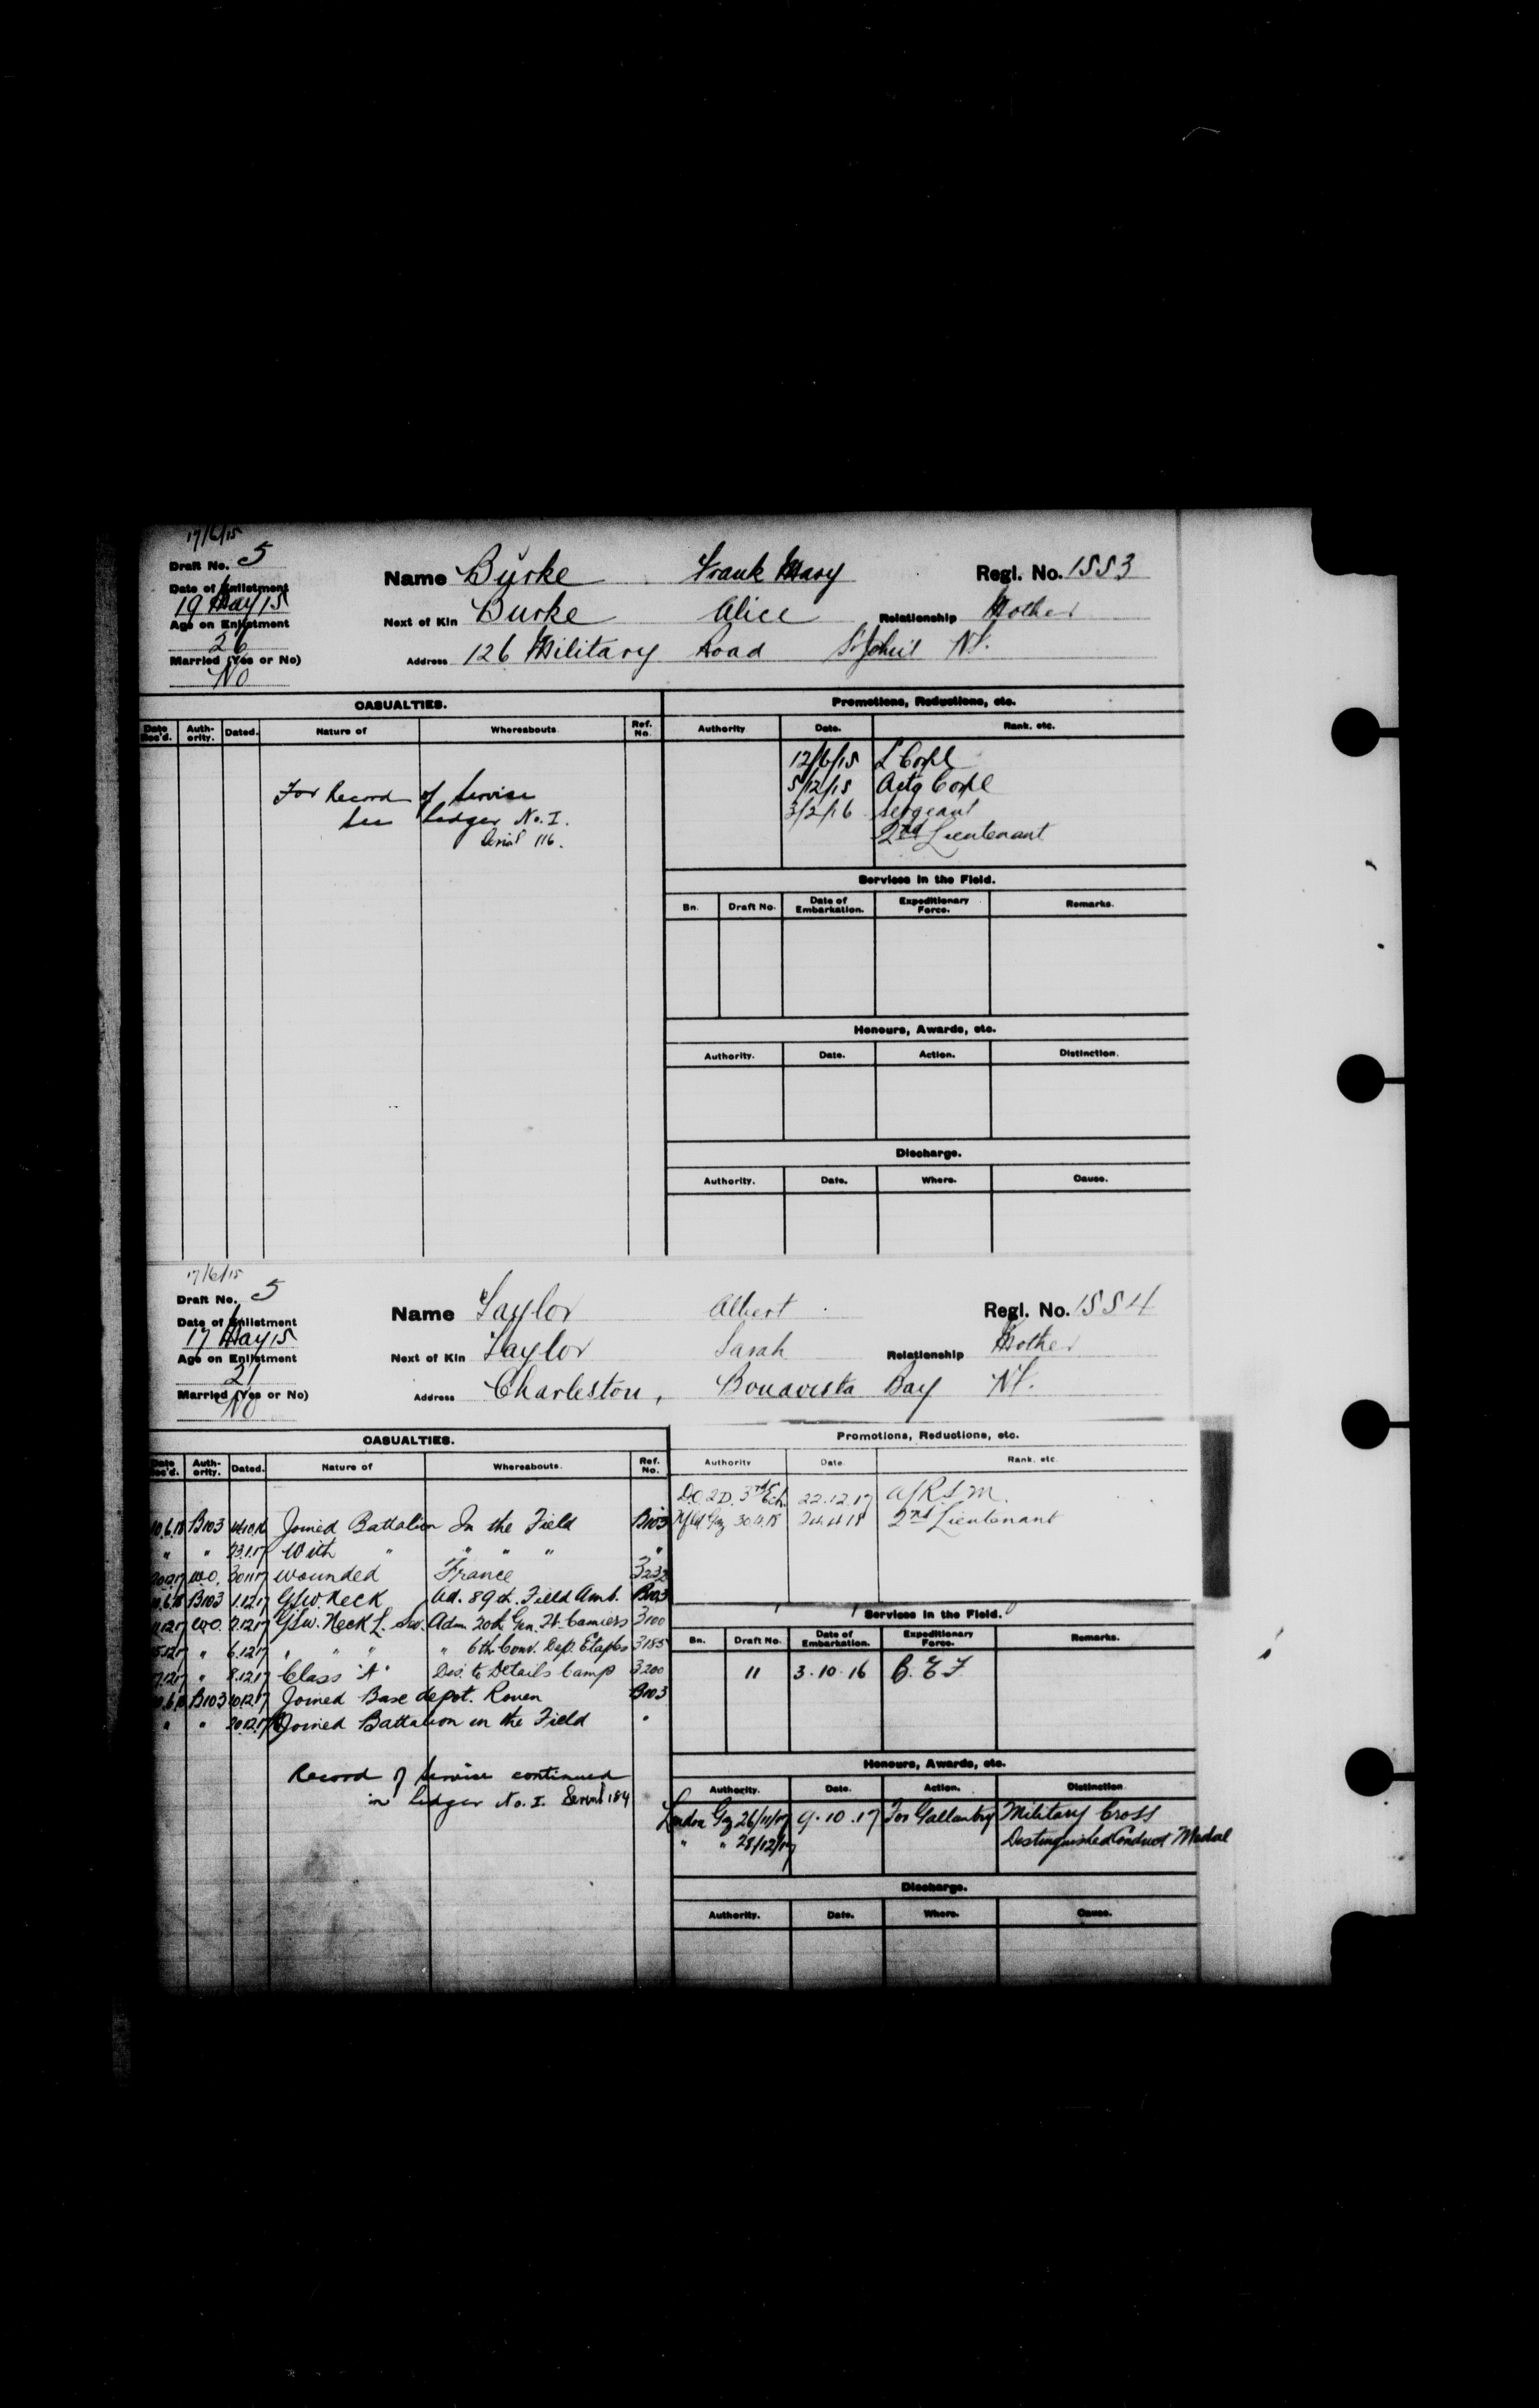 17/6/15
Draft No. 5
Date of Enlistment
19 May 15
Age on Enlistment
26
Married (Yes or No)
No
Name Burke Frank Mary Regl. No. 1553
Next of Kin Burke Alice Relationship Mother
Address 126 Military Road St John's Nf.
CASUALTIES.
Date Rec'd. Auth-ority. Dated. Nature of Whereabouts. Ref. No.
For Record of Service
See Ledger No. I.
Serial 116.
Promotions, Reductions, etc.
Authority Date. Rank. etc.
12/6/15 L Corpl
5/12/15 Actg Corpl
3/2/16 Sergeant
2nd Lieutenant
Services in the Field.
Bn. Draft No. Date of Embarkation. Expeditionary Force. Remarks.
Honours, Awards, etc.
Authority. Date. Action. Distinction.
Discharge.
Authority. Date. Where. Cause.
17/6/15
Draft No. 5
Date of Enlistment
17 May 15
Age on Enlistment
21
Married (Yes or No)
No
Name Taylor Albert Regl. No. 1554
Next of Kin Taylor Sarah Relationship Mother
Address Charleston, Bonavista Bay Nf.
CASUALTIES.
Date Rec'd. Auth-ority. Dated. Nature of Whereabouts. Ref. No.
10.6.18 B103 Joined Battalion In the Field B103
" " 23.1.17 With " " " " "
W.O. 30.11.17 wounded France 3232
10.6.18 B103 1.12.17 GSW. Neck Ad. 89th. Field Amb. B103
W.O. 2.12.17 GSW. Neck L. Sev. Adm 20th Gen. H. Camiers 3100
" 6.12.17 " " " " 6th Conv. Dep. Etaples 3185
" 8.12.17 Class "A" Dis. to Details Camp 3200
10.6.18 B103 10.12.17 Joined Base depot. Rouen B103
" " 20.12.17 Joined Battalion in the Field "
Record of Service continued
in Ledger No. I. Serial 184
Promotions, Reductions, etc.
Authority Date. Rank. etc.
D.O. 2D. 3rd Ech. 22.12.17 A/R.S.M.
Nfld Gaz 30.4.18 24.4.18 2nd Lieutenant
Services in the Field.
Bn. Draft No. Date of Embarkation. Expeditionary Force. Remarks.
11 3.10.16 B.E.F
Honours, Awards, etc.
Authority. Date. Action. Distinction.
London Gaz 26/11/17 9.10.17 For Gallantry Military Cross
" " 28/12/17 Distinguished Conduct Medal
Discharge.
Authority. Date. Where. Cause.